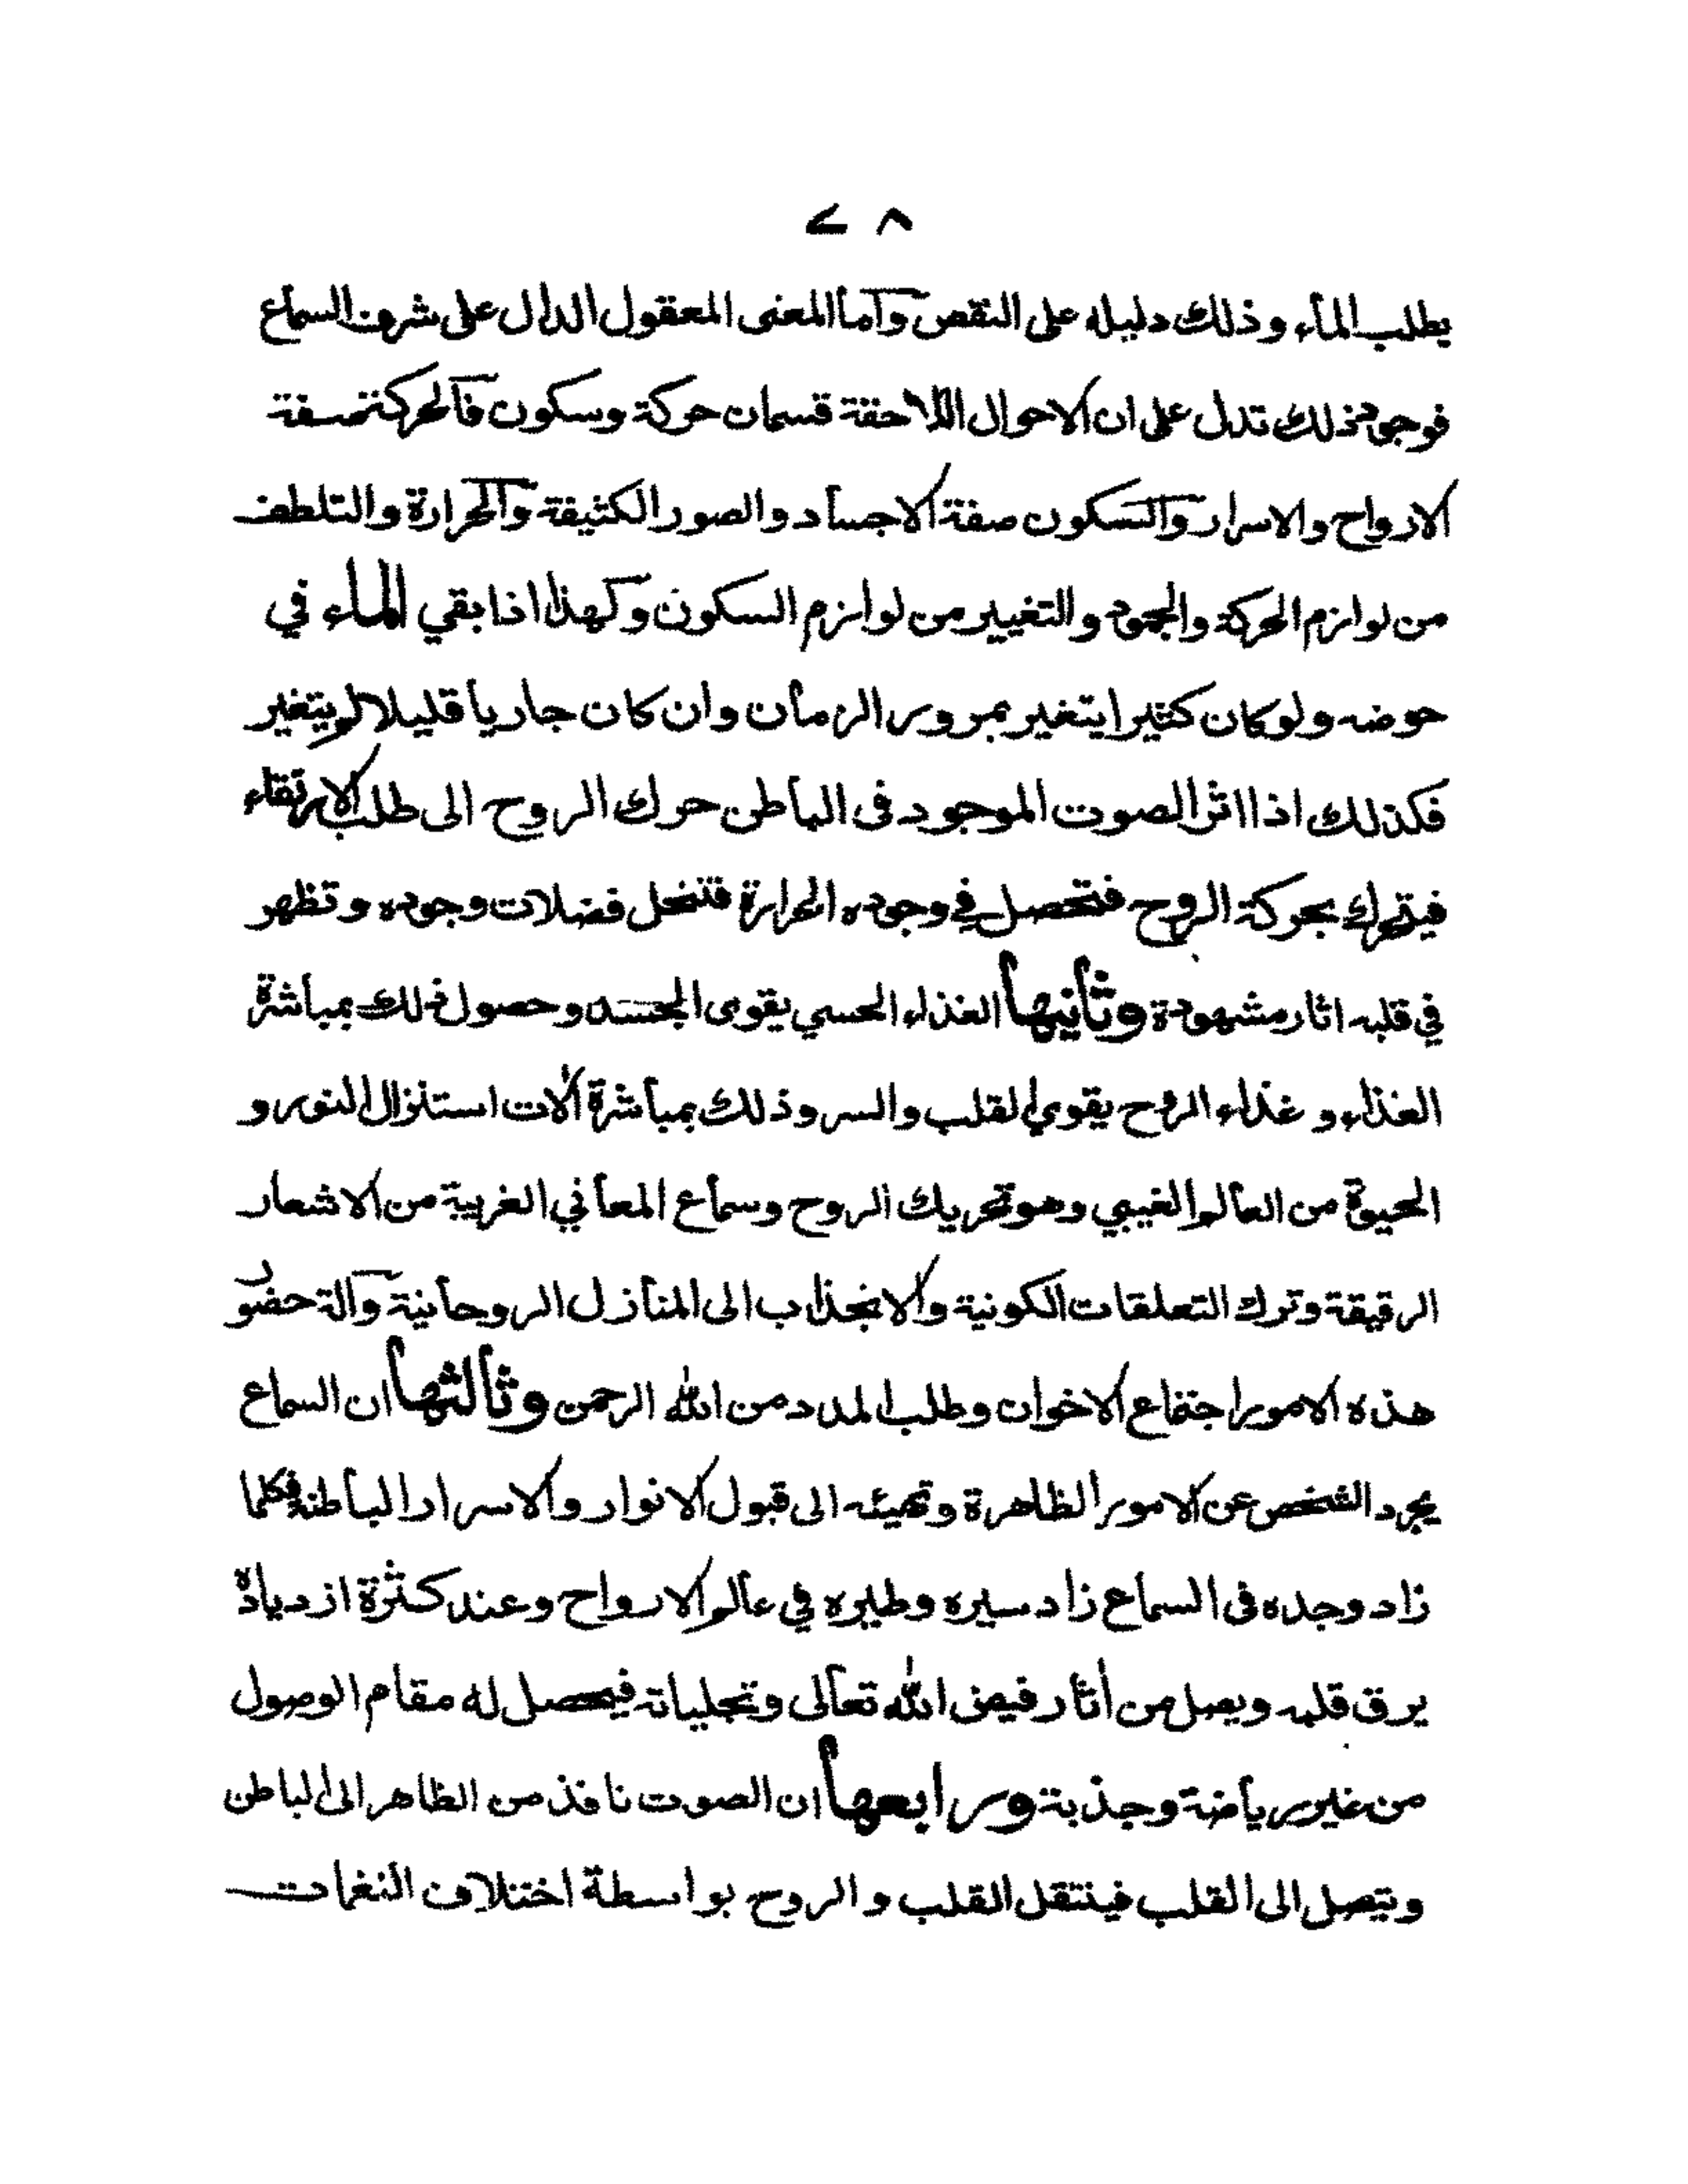 ٨ ے
يطلب الماء وذلك دليله على النقص وأما المعنى المعقول الدال على شرف السماع
فوجوه ذلك تدل على ان الاحوال اللاحقة قسمان حركة وسكون فالحركة صفة
الارواح والاسرار والسكون صفة الاجساد والصور الكثيفة والحرارة والتلطف
من لوازم الحركة والجمود والتغيير من لوازم السكون ولهذا اذا بقي الماء في
حوضه ولو كان كثيرا يتغير بمرور الزمان وان كان جاريا قليلا لم يتغير
فكذلك اذا اثر الصوت الموجود فى الباطن حرك الروح الى طلب الارتقاء
فيتحرك بحركة الروح فتحصل في وجوده الحرارة فتنحل فضلات وجوده وتظهر
في قلبه اثار مشهودة وثانيها الغذاء الحسي يقوى الجسد وحصول ذلك بمباشرة
الغذاء وغذاء الروح يقوي القلب والسر وذلك بمباشرة الات استنزال النور و
الحيوة من العالم الغيبي وهو تحريك الروح وسماع المعاني الغريبة من الاشعار
الرقيقة وترك التعلقات الكونية والانجذاب الى المنازل الروحانية وآلة حضور
هذه الامور اجتماع الاخوان وطلب المدد من الله الرحمن وثالثها ان السماع
يجرد الشخص عن الامور الظاهرة وتهيئه الى قبول الانوار والاسرار الباطنة فكلما
زاد وجده فى السماع زاد سيره وطيره في عالم الارواح وعند كثرة ازدياده
يرق قلبه ويصل من أثار فيض الله تعالى وتجلياته فيحصل له مقام الوصول
من غير رياضة وجذبة ورابعها ان الصوت نافذ من الظاهر الى الباطن
ويتصل الى القلب فينتقل القلب والروح بواسطة اختلاف النغمات